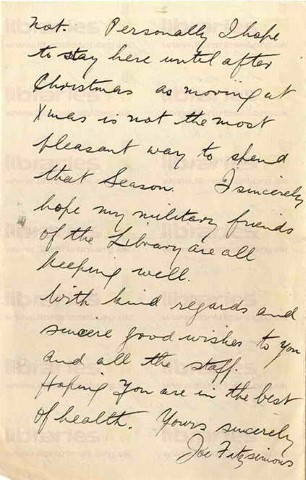 not. Personally I hope
to stay here until after
Christmas as moving at
Xmas is not the most
pleasant way to spend
that Season. I sincerely
hope my military friends
of the Library are all
keeping well.
With kind regards and
sincere good wishes to you
and all the staff.
Hoping you are in the best
of health. Yours sincerely
Joe Fitzsimons